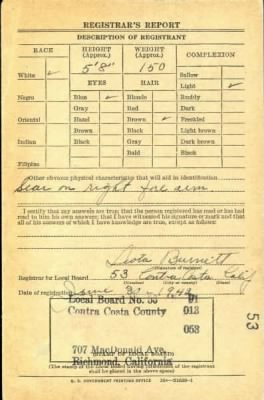 REGISTRAR'S REPORT
DESCRIPTION OF REGISTRANT
RACE HEIGHT (Approx.) WEIGHT (Approx.) COMPLEXION
5'8" 150
White ✓ EYES HAIR Sallow
Light ✓
Negro Blue ✓ Blonde Ruddy
Gray Red Dark
Oriental Hazel Brown ✓ Freckled
Brown Black Light brown
Indian Black Gray Dark brown
Bald Black
Filipino
Other obvious physical characteristics that will aid in identification
Scar on right fore arm.
I certify that my answers are true; that the person registered has read or has had
read to him his own answers; that I have witnessed his signature or mark and that
all of his answers of which I have knowledge are true, except as follows:
Burnett
(Signature of registrar)
Registrar for Local Board 53 Contra Costa Calif
(Number) (City or county) (State)
Date of registration
Local Board No. 53
Contra Costa County
013
053
707 MacDonald Ave.
Richmond, California
(STAMP OF LOCAL BOARD)
(The stamp of the Local Board having jurisdiction of the registrant
shall be placed in the above space)
U. S. GOVERNMENT PRINTING OFFICE
53